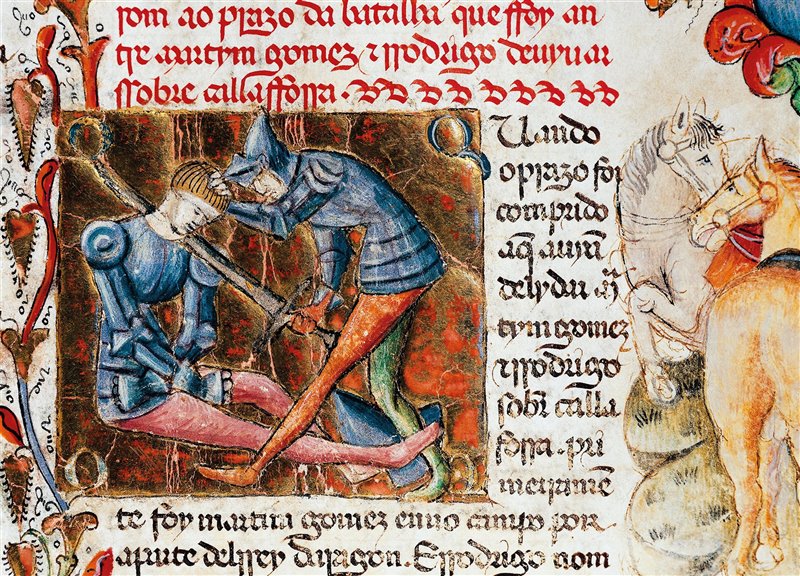 rom ao prazo da batalha que ffoy an
tre martym gomez & rrodrigo de uyuar
ssobre callafforra
Uando
o prazo foy
comprido
aq̃ auiã
de lydar m̃
tym gomez
& rrodrigo
sobr̃ calla
forra. pri
meiramẽ
te foy martin gomez enno campo por
a parte delrrey daragon. E rrodrigo nom